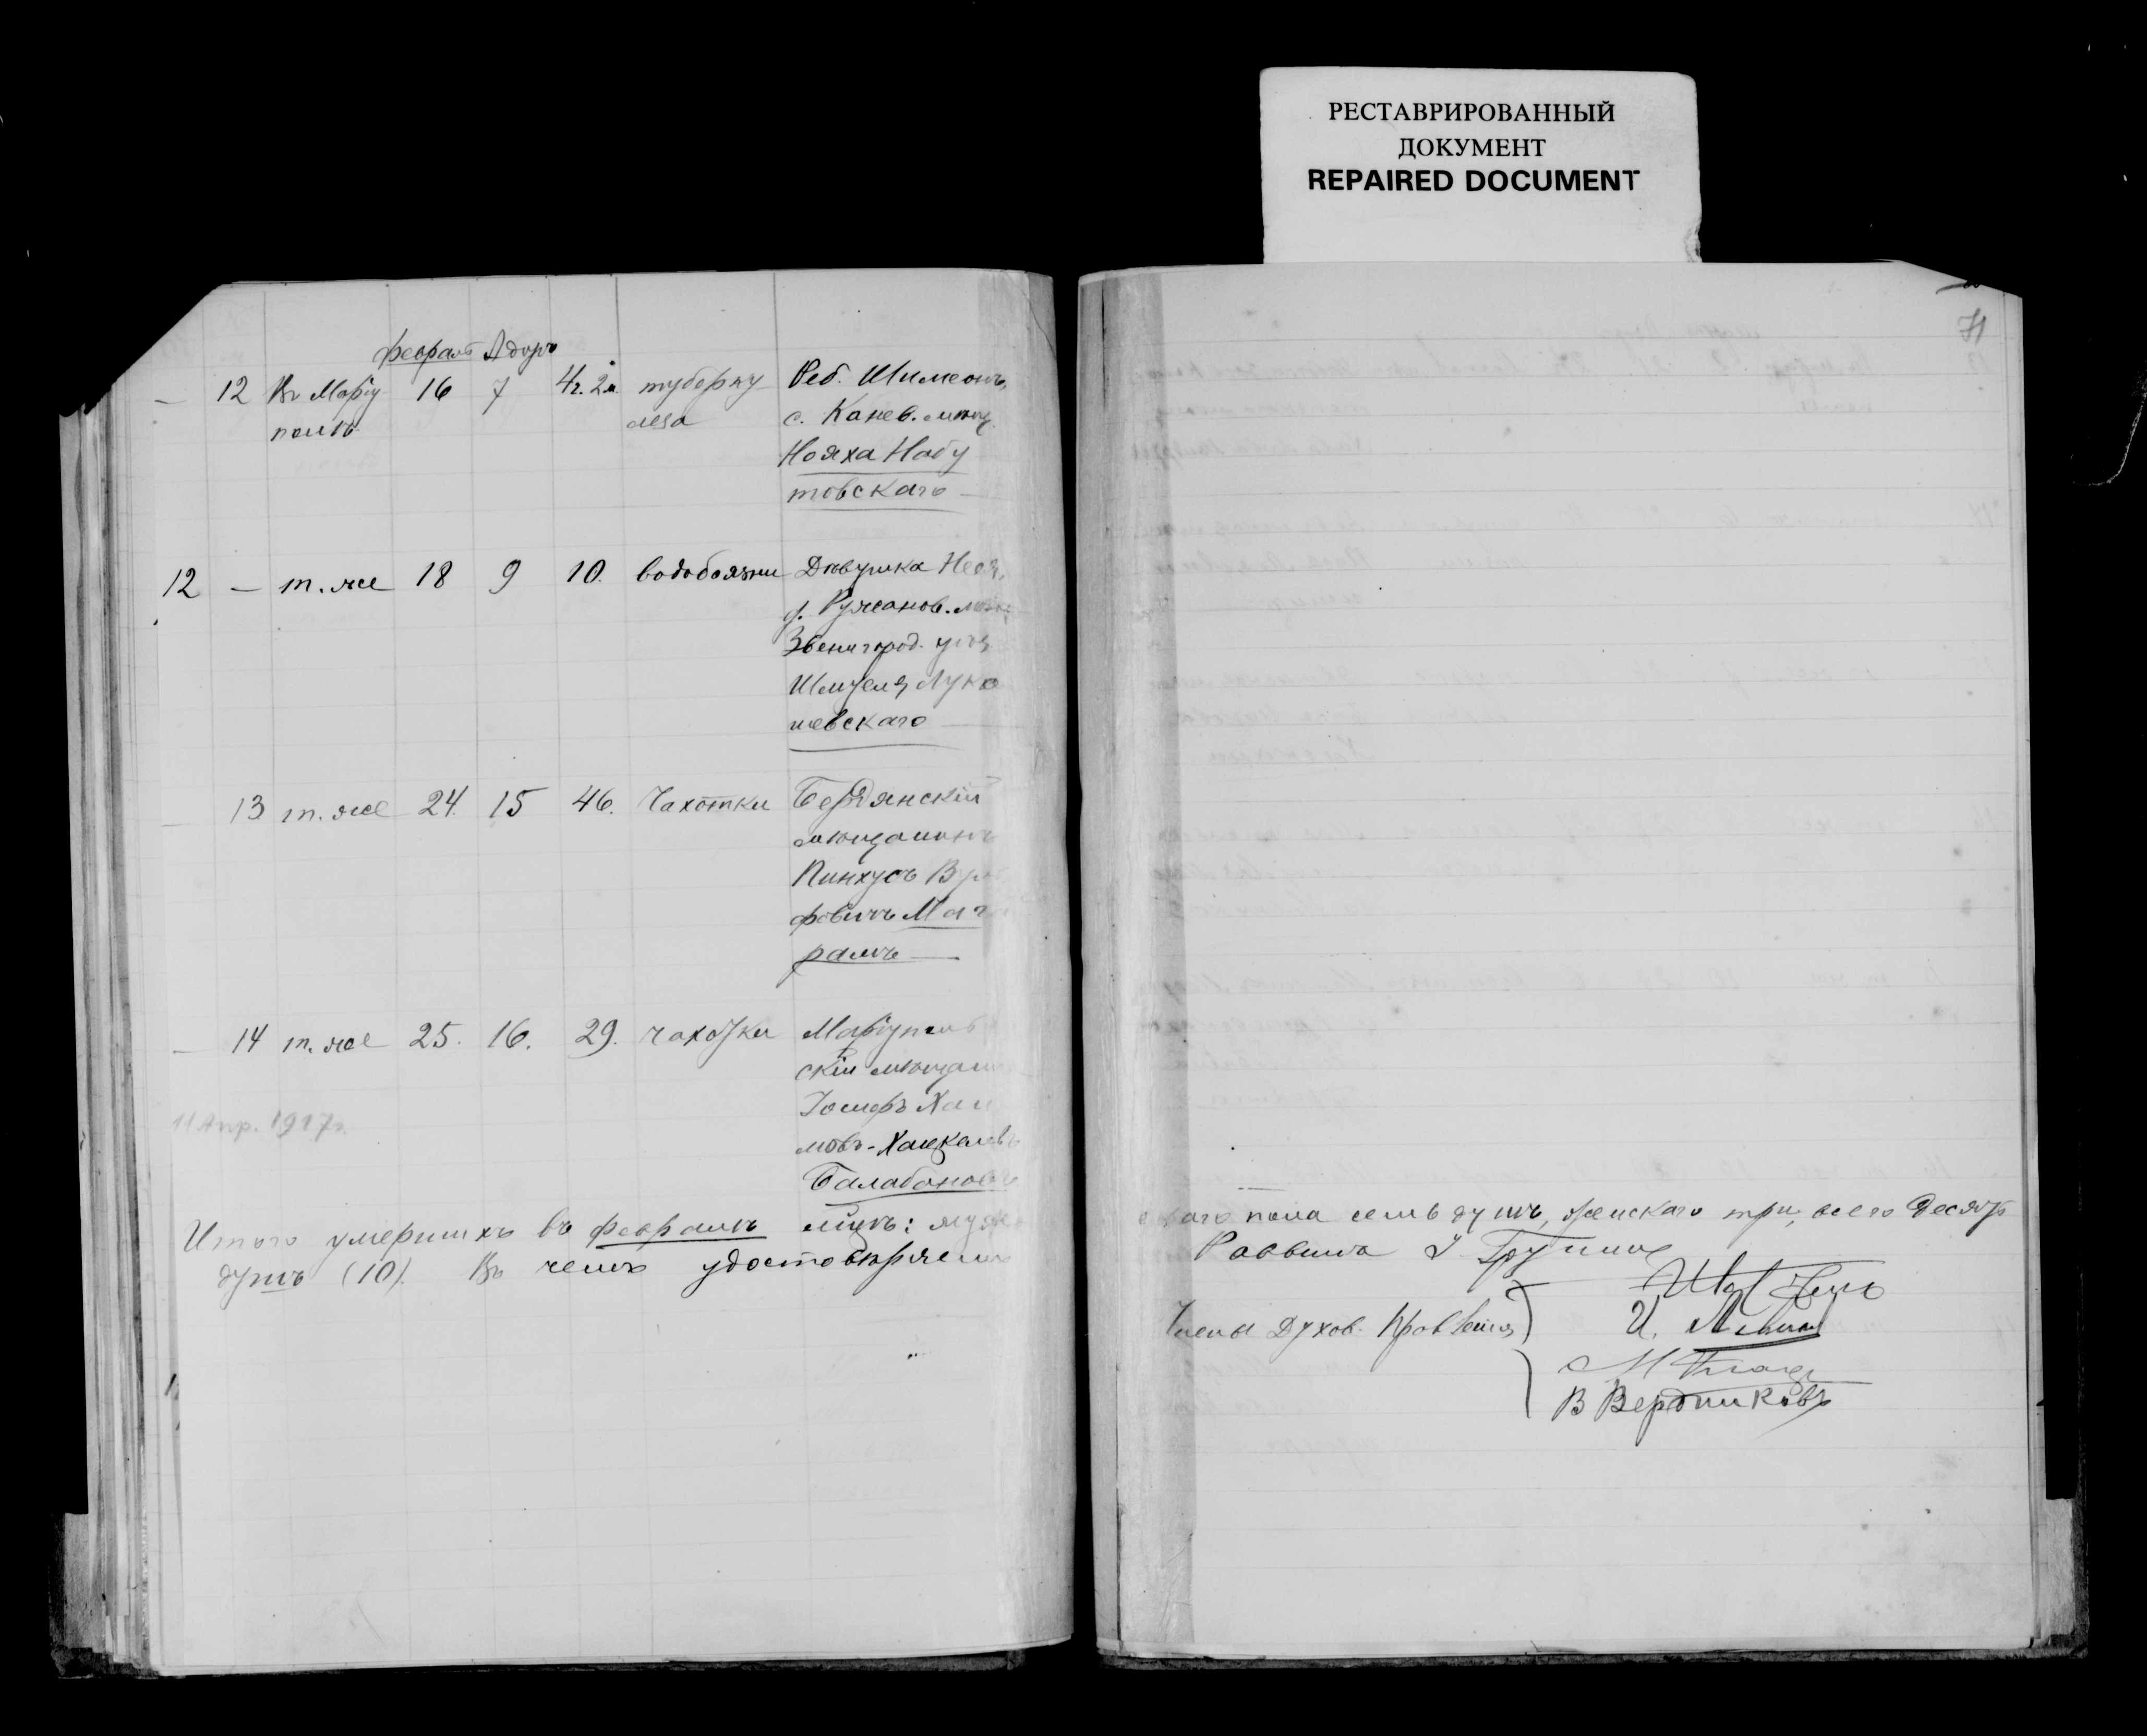 РЕСТАВРИРОВАННЫЙ
ДОКУМЕНТ
REPAIRED DOCUMENT
71
февраль Адаръ
— 12 Въ Маріу 16 7 4г. 2м. туберку Реб. Шимеонъ,
полѣ леза с. Канев. мѣщ.
Нояха Набу
товскаго
12 — т. же 18 9 10. водобоязни Дѣвушка
д. Ружанов. мѣщ.
Звенигород. уѣз
Шмуеля Луко
шевскаго
— 13 т. же 24. 15 46. Чахотки Бердянскій
мѣщанинъ
Пинхусъ Вул
фовичъ Маг
рамъ
— 14 т. же 25. 16. 29. чахотки Маріуполь
скій мѣщан
Іосифъ Хаи
мовъ-Хацкелевъ
Балабановъ
11 Апр. 1917г.
Итого умершихъ въ февралѣ мцѣ: муж
скаго пола семь душъ, женскаго три, всего десять
душъ (10). Въ чемъ удостовѣряемъ
Раввинъ
Члены Духов. Правленія
И. Левин
В Вердниковъ